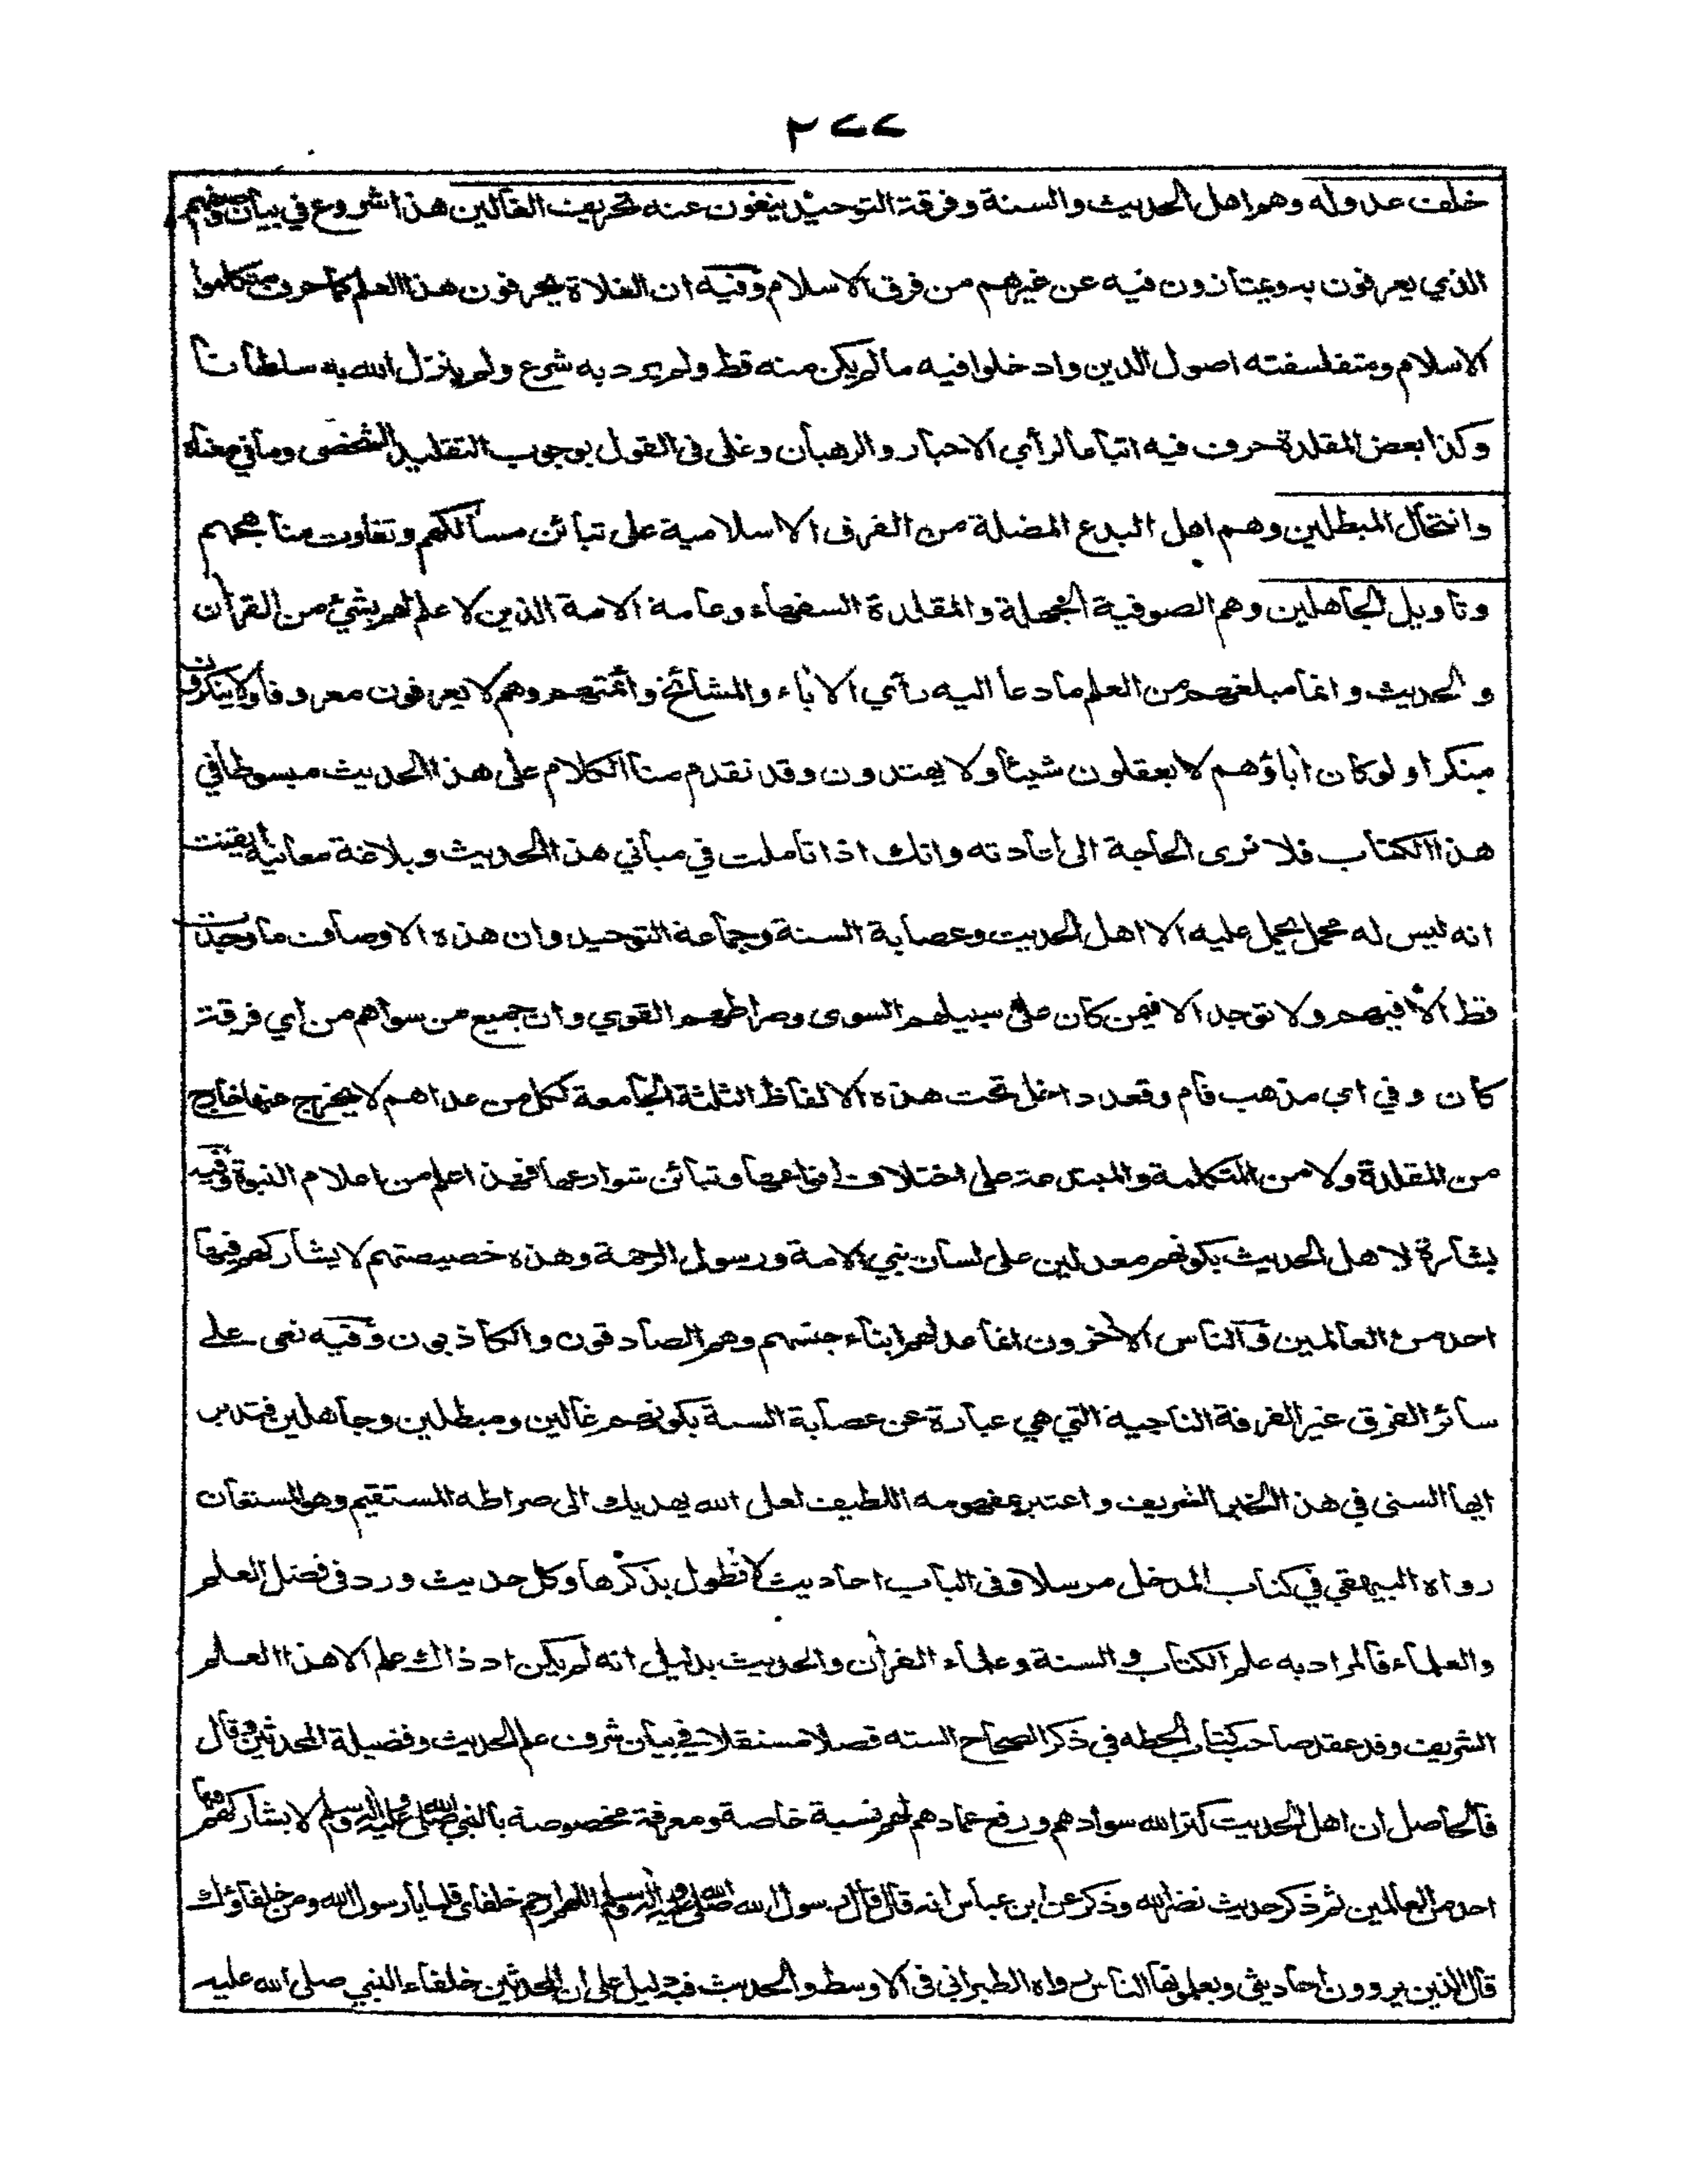 ٢٧٧
خلف عدوله وهم اهل الحديث والسنة وفرقة التوحيد ينفون عنه تحريف الغالين هذا شروع في بيان وصفهم
الذي يعرفون به ويمتازون فيه عن غيرهم من فرق الاسلام وفيه ان الغلاة يحرفون هذا العلم كما حرف متكلموا
الاسلام ومتفلسفته اصول الدين وادخلوا فيه ما لم يكن منه قط ولم يرد به شرع ولم ينزل الله به سلطانا
وكذا بعض المقلدة حرف فيه اتباعا لرأي الاحبار والرهبان وغلى في القول بوجوب التقليد الشخصى وما في معناه
وانتحال المبطلين وهم اهل البدع المضلة من الفرق الاسلامية على تبائن مسالكهم وتفاوت مناهجهم
وتاويل الجاهلين وهم الصوفية الجهلة والمقلدة السفهاء وعامة الامة الذين لا علم لهم بشيئ من القرأن
والحديث وانما مبلغهم من العلم ما دعا اليه رأي الأباء والمشائخ وائمتهم وهم لا يعرفون معروفا ولا ينكرون
منكرا ولو كان أباؤهم لا يعقلون شيئا ولا يهتدون وقد تقدم منا الكلام على هذا الحديث مبسوطا في
هذا الكتاب فلا نرى الحاجة الى اعادته وانك اذا تاملت في مباني هذا الحديث وبلاغة معانيه ايقنت
انه ليس له محمل يحمل عليه الا اهل الحديث وعصابة السنة وجماعة التوحيد وان هذه الاوصاف ما وجدت
قط الا فيهم ولا توجد الا فيمن كان على سبيلهم السوى وصراطهم القوي وان جميع من سواهم من اي فرقة
كان وفي اي مذهب قام وقعد داخل تحت هذه الالفاظ الثلثة الجامعة لكل من عداهم لا يخرج عنها خارج
من المقلدة ولا من المتكلمة والمبتدعة على اختلاف انواعها وتبائن شوارعها فهذ اعلم من اعلام النبوة وفيه
بشارة لاهل الحديث بكونهم معدلين على لسان نبي الامة ورسول الرحمة وهذه خصيصتهم لا يشاركهم فيها
احد من العالمين والناس الأخرون انما عدلهم ابناء جنسهم وهم الصادقون والكاذبون وفيه نعى على
سائر الفرق غير الفرقة الناجية التي هي عبارة عن عصابة السنة بكونهم غالين ومبطلين وجاهلين فتدبر
ايها السنى في هذا الخبر الشريف واعتبر بمفهومه اللطيف لعل الله يهديك الى صراطه المستقيم وهو المستعان
رواه البيهقي في كتاب المدخل مرسلا وفى الباب احاديث لا نطول بذكرها وكل حديث ورد فى فضل العلم
والعلماء فالمراد به علم الكتاب والسنة وعلماء القرأن والحديث بدليل انه لم يكن اذ ذاك علم الا هذا العلم
الشريف وقد عقد صاحب كتاب الحطه في ذكر الصحاح السته فصلا مستقلا في بيان شرف علم الحديث وفضيلة المحدثين وقال
فالحاصل ان اهل الحديث كثر الله سوادهم ورفع عمادهم لهم نسبة خاصة ومعرفة مخصوصة بالنبي صلى الله عليه وآله وسلم لا يشاركهم فيها
احد من العالمين ثم ذكر حديث نضر الله وذكر عن ابن عباس انه قال قال رسول الله صلى الله عليه وآله وسلم اللهم ارحم خلفاى قلنا يا رسول الله ومن خلفاؤك
قال الذين يروون احاديثي ويعلمونها الناس رواه الطبراني فى الاوسط والحديث فيه دليل على ان المحدثين خلفاء النبي صلى الله عليه